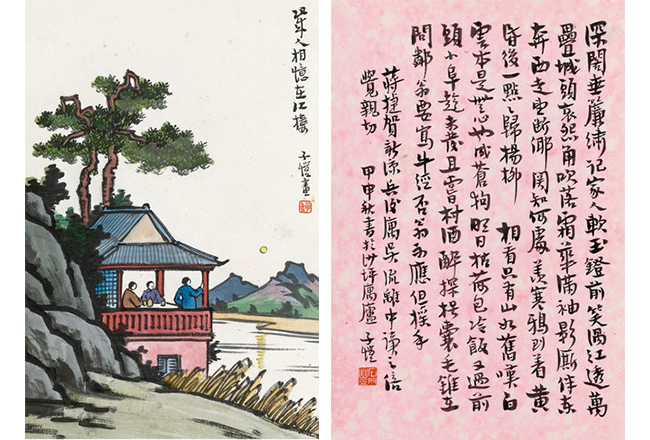 幾人相憶在江樓
子愷畫
深閣垂簾繡記家人軟語鐙前笑渦紅透萬
疊城頭哀怨角吹落霜華滿袖影厮伴東
奔西走望斷鄉關知何處羨寒鴉到着黄
昏後一點點歸楊柳 相看只有山如舊嘆白
雲本是無心也成蒼狗明日枯荷包冷飯又過前
頭小阜趁未發且嘗村酒醉探枵囊毛錐在
問鄰翁要寫牛經否翁不應但搖手
蔣捷賀新涼兵後寓吳流離中讀之倍
覺親切 甲申秋書於沙坪寓廬 子愷